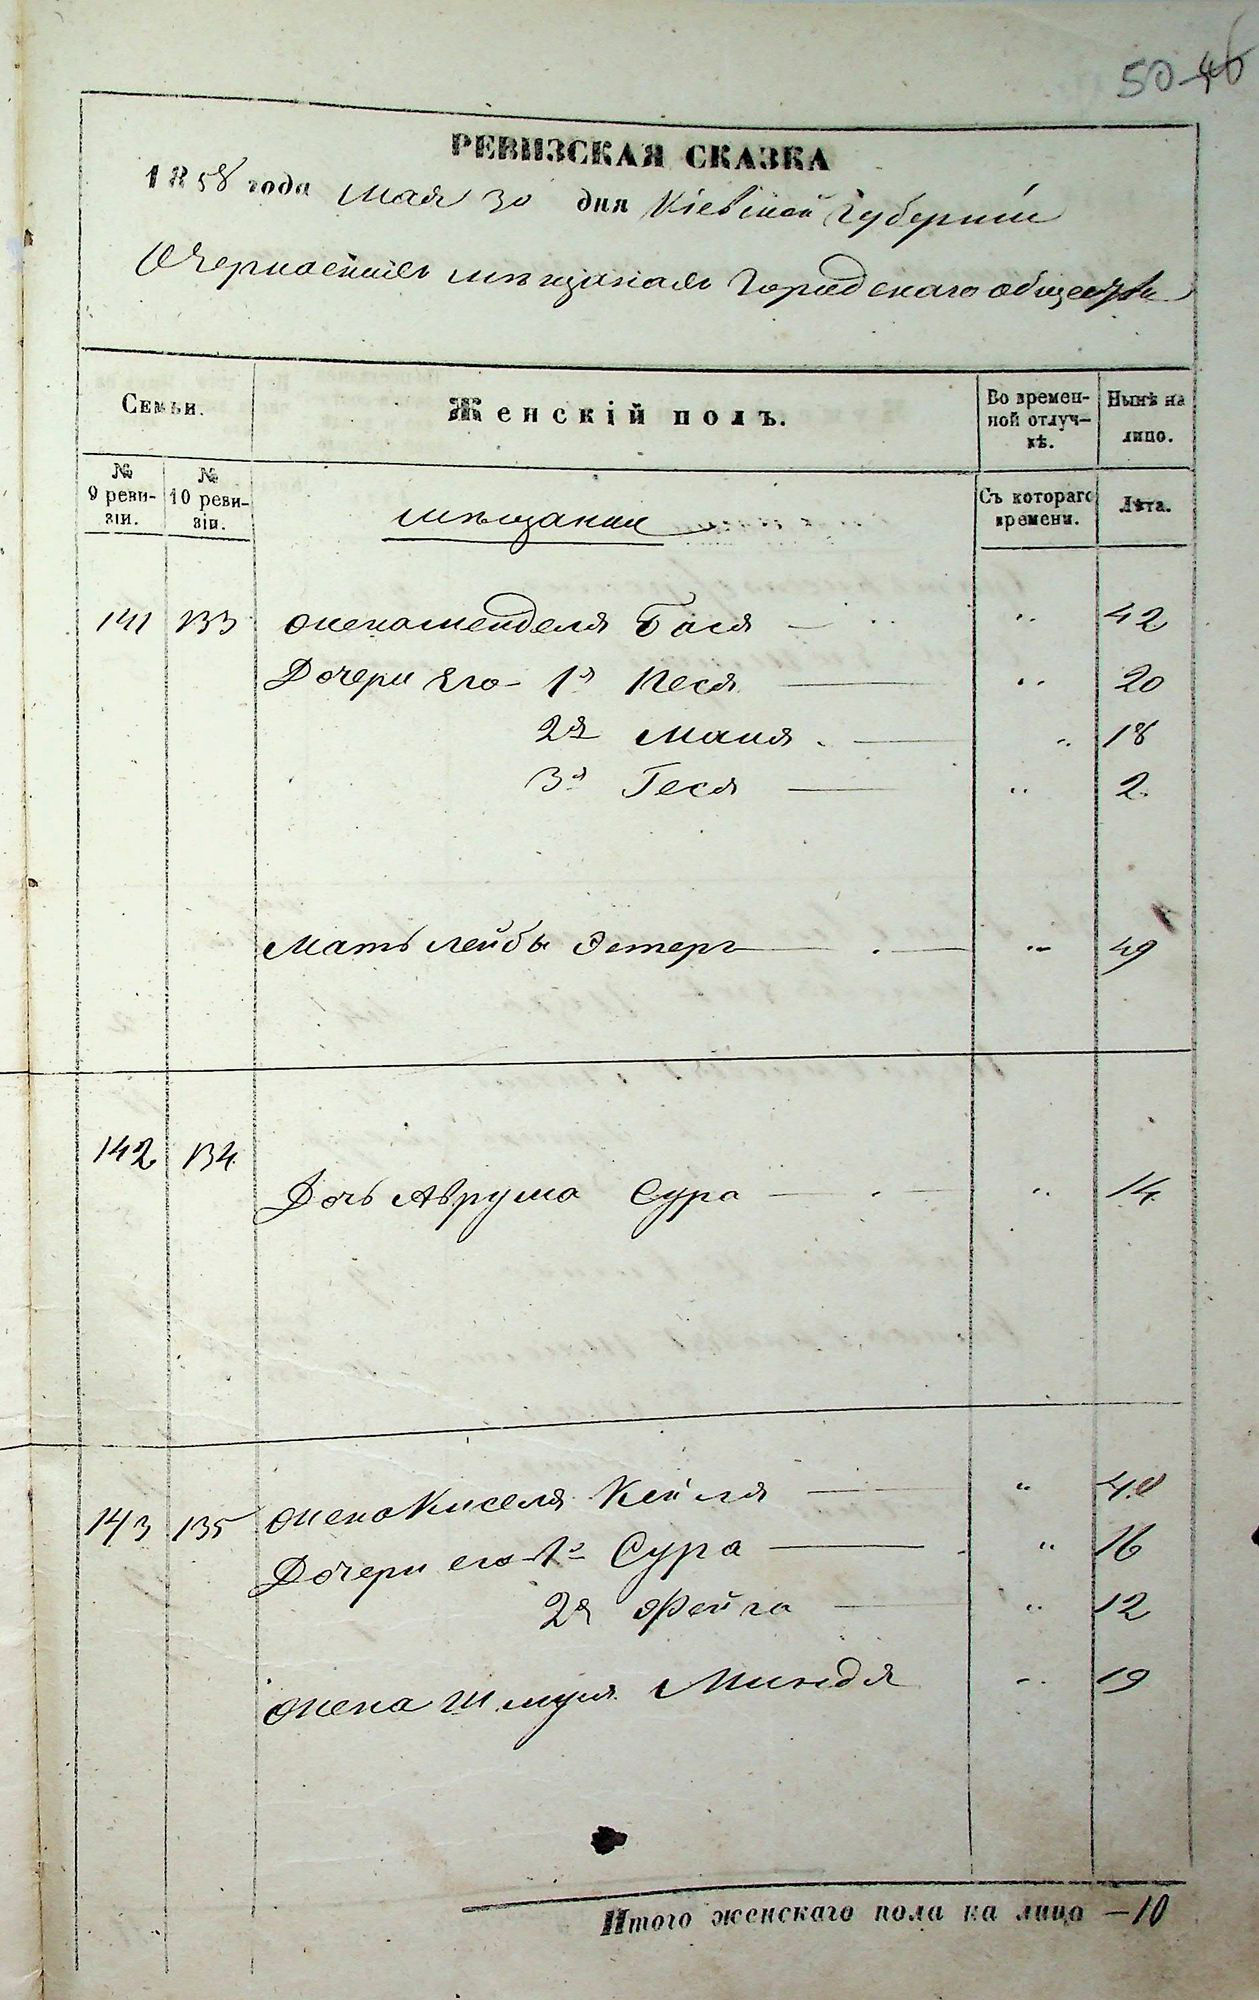 50 46
РЕВИЗСКАЯ СКАЗКА
1858 года Мая 30 дня Кіевской Губерніи
О Черкасскихъ мѣщанахъ Городскаго общества
Семьи. Женскій полъ. Во времен- Нынѣ на
ной отлуч- лицо.
кѣ.
№ № Съ котораго Лѣта.
9 реви- 10 реви- времени.
зіи. зіи.
мѣщанки
141 133 жена Менделя Бася — " 42
Дочери Его 1я Песя — " 20
2я Маня — " 18
3я Геся — " 2
Мать Лейбы Эстеръ — " 49
142 134
Дочь Аврума Сура — " 14
143 135 жена Киселя Кейля — " 40
Дочери его 1я Сура — " 16
2я Фейга — " 12
жена Шмуля Миндя " 19
Итого женскаго пола на лицо — 10